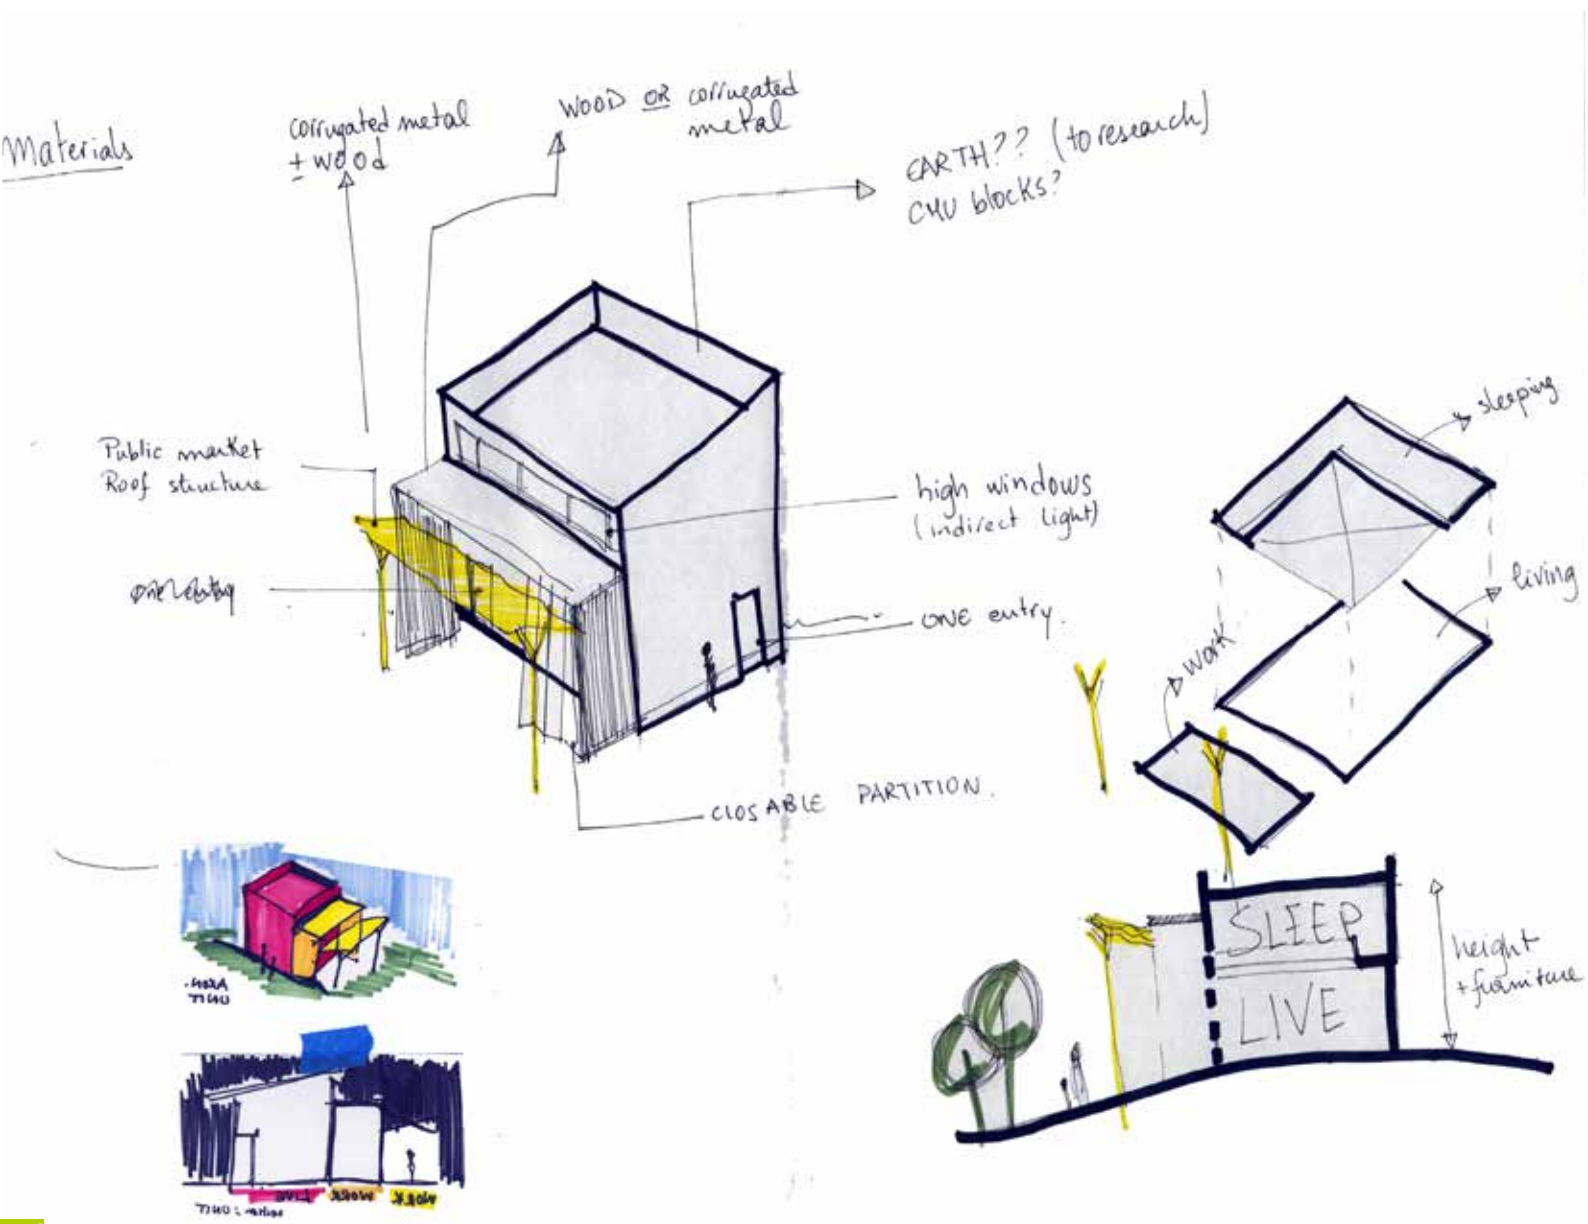 Materials
corrugated metal
± wood
WOOD OR corrugated
metal
EARTH?? (to research)
CMU blocks?
Public market
Roof structure
high windows
(indirect light)
ONE entry.
CLOSABLE PARTITION.
sleeping
living
work
SLEEP
LIVE
height
+ furniture
UNIT
LIVE WORK WORK
UNIT: